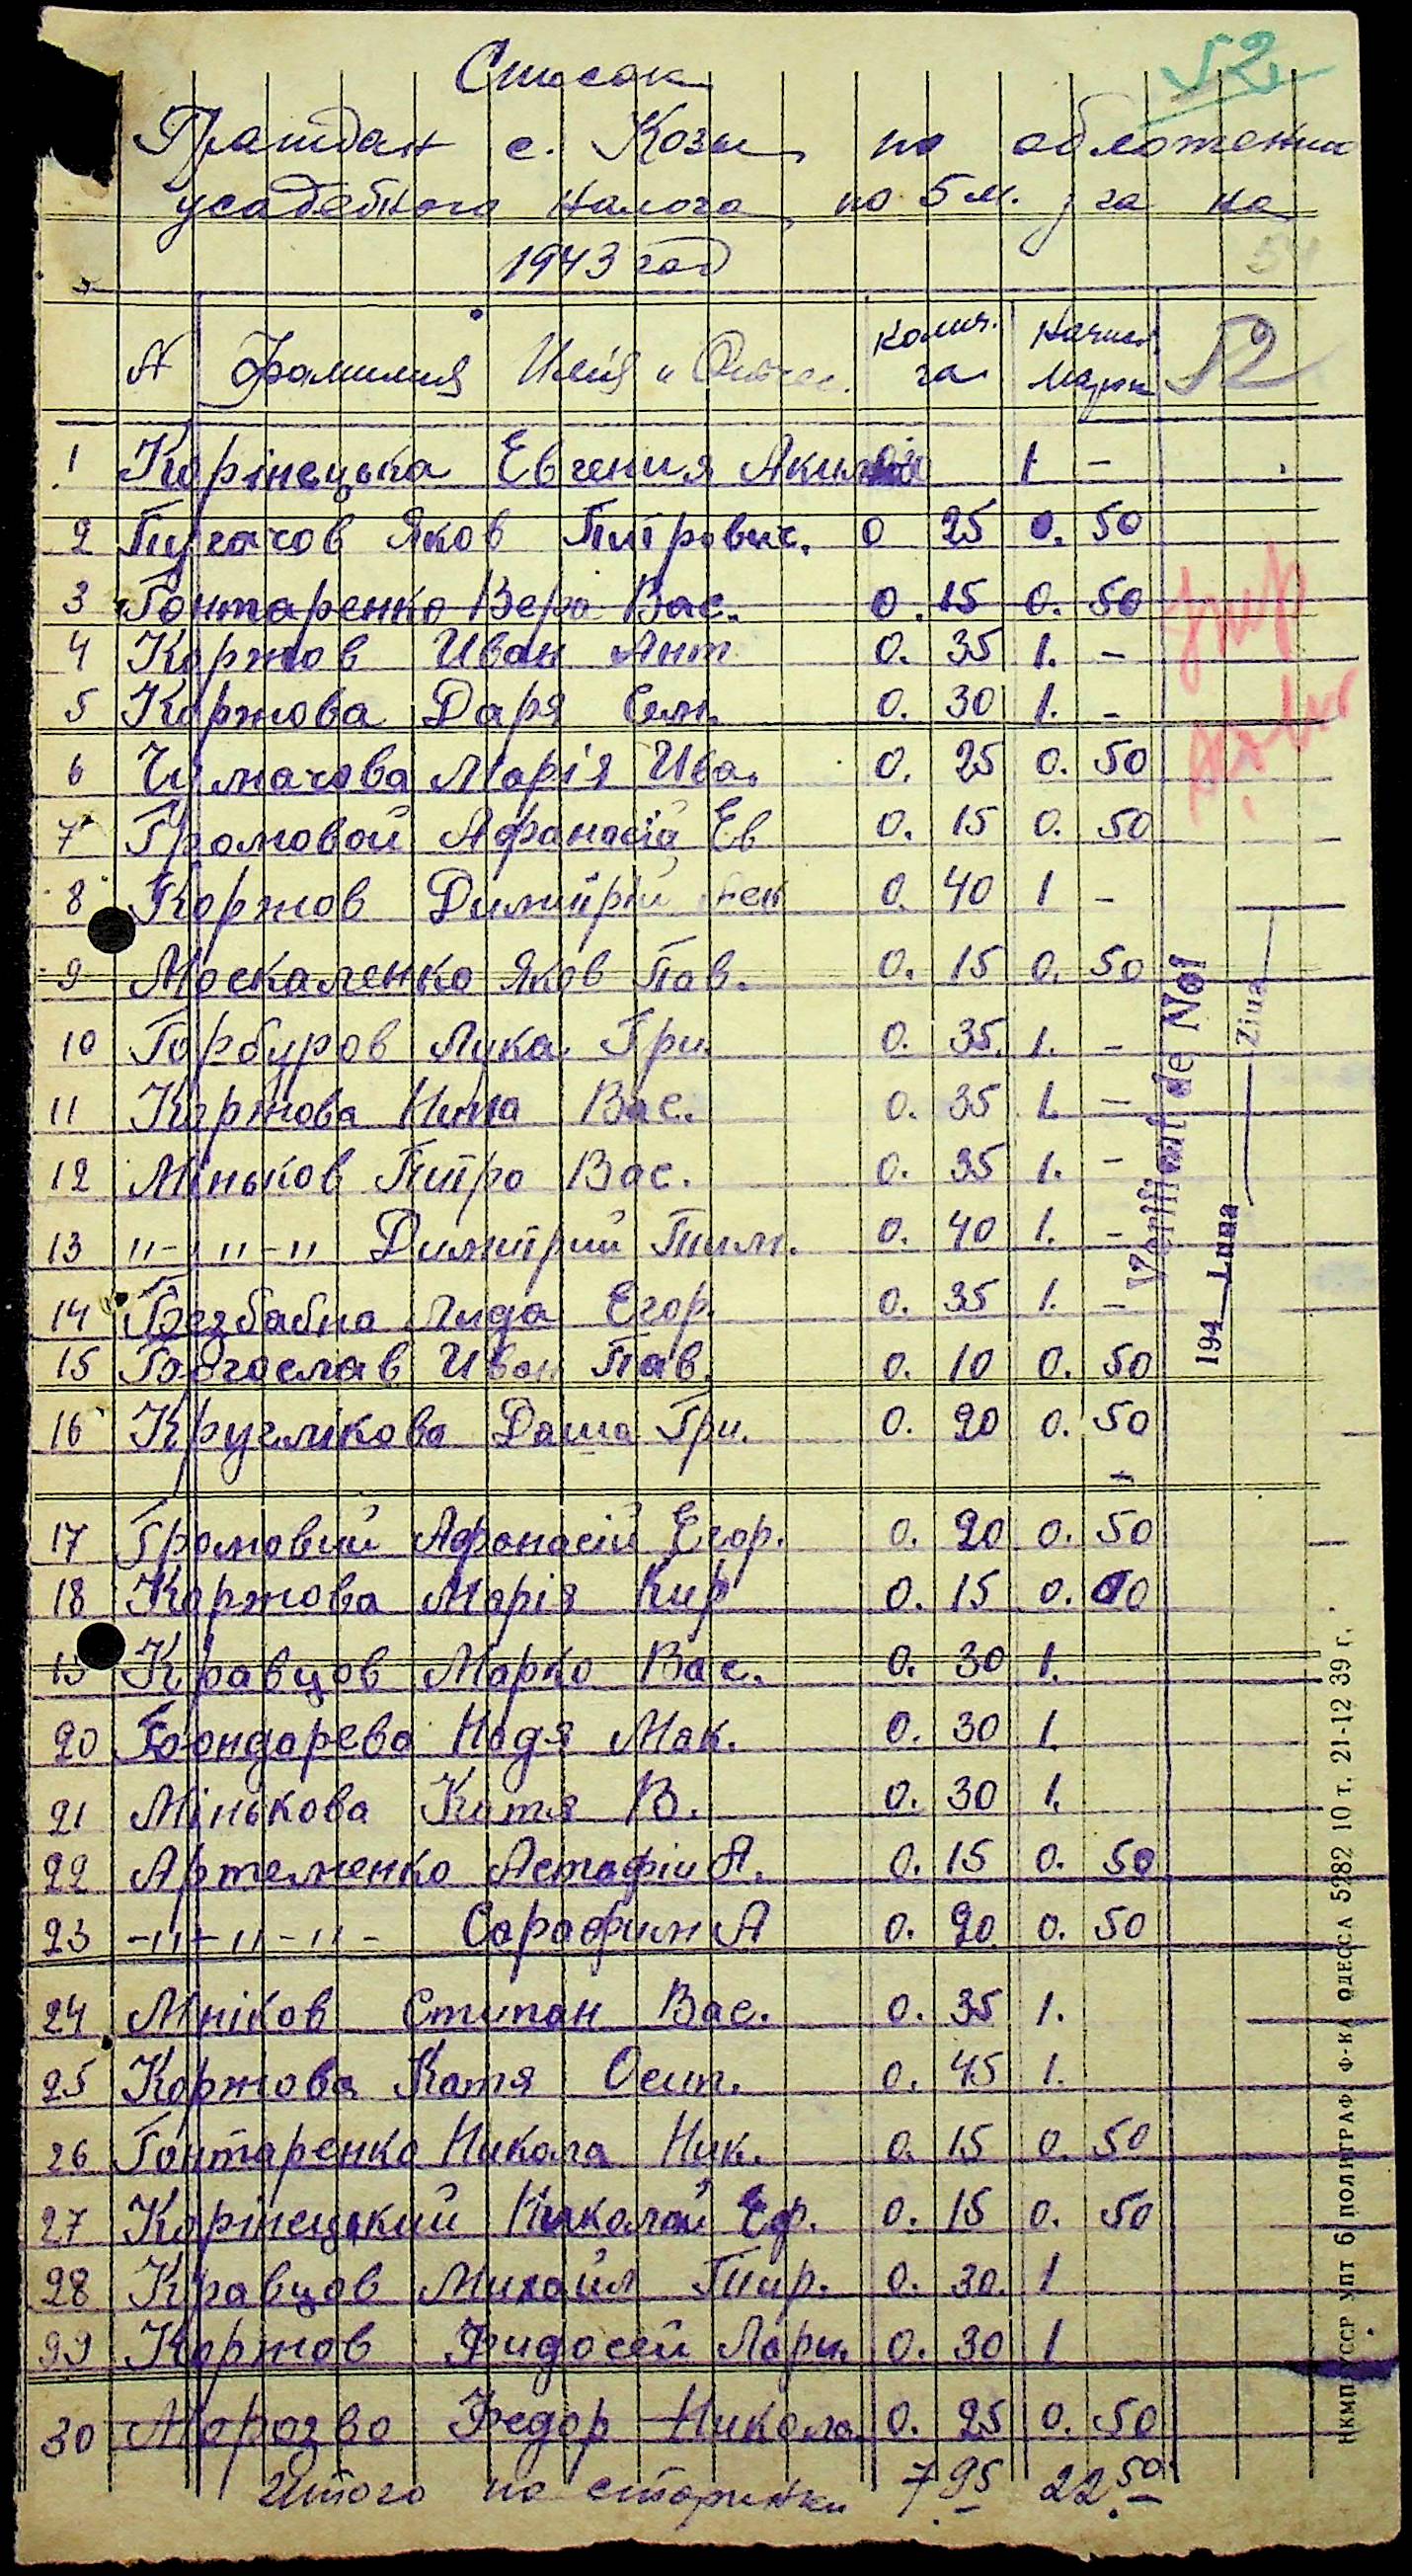 52
Список
Граждан с. Козы, по обложению
усадебного налога, по 5 м. за га на
1943 год
52
№ Фамилия Имя и Отчес. Колич. га Начисл. Марк
1 Корінецька Евгения 1 -
2 Пугачов Яков Питрович. 0 25 0. 50
3 Гонтаренко Вера Вас. 0. 15 0. 50
4 Коржов Иван Ант 0. 35 1. -
5 Коржова Даря Сем. 0. 30 1. -
6 Чумачова Марія Ива. 0. 25 0. 50
7 Громовой Афанасій Ев 0. 15 0. 50
8 Коржов Димитрій 0. 40 1 -
9 Москаленко Яков Пав. 0. 15 0. 50
10 Горбуров Лука Гри. 0. 35. 1. -
11 Коржова Нина Вас. 0. 35 1. -
12 Міньков Питро Вас. 0. 35 1. -
13 "-"-" Димитрий Тим. 0. 40 1. -
14 Безбабна Лида Егор. 0. 35 1. -
15 Богослав Иван Пав. 0. 10 0. 50
16 Круглікова Даша Гри. 0. 20 0. 50
-
17 Громовий Афонасій Егор. 0. 20 0. 50
18 Коржова Марія Кир 0. 15 0.
19 Кравцов Марко Вас. 0. 30 1.
20 Бондарева Надя Мак. 0. 30 1.
21 Мінькова Катя В. 0. 30 1.
22 Артеменко Астафій А. 0. 15 0. 50
23 -"-"-"- Сарафим А 0. 20 0. 50
24 Мніков Стипан Вас. 0. 35 1.
25 Коржова Катя Осип. 0. 45 1.
26 Гонтаренко Никола Ник. 0. 15 0. 50
27 Корінецький Николай Еф. 0. 15 0. 50
28 Кравцов Михаил 0. 30. 1
29 Коржов Фидосей Лари. 0. 30 1
30 Морозво Федор Никола. 0. 25 0. 50
Итого по сторинки 7.95 22.50
Verificat de Noi
194 Luna Ziua
НКМП УССР УПТ 6 ПОЛИГРАФ. Ф-КА ОДЕССА 5282 10 т. 21-12 39 г.